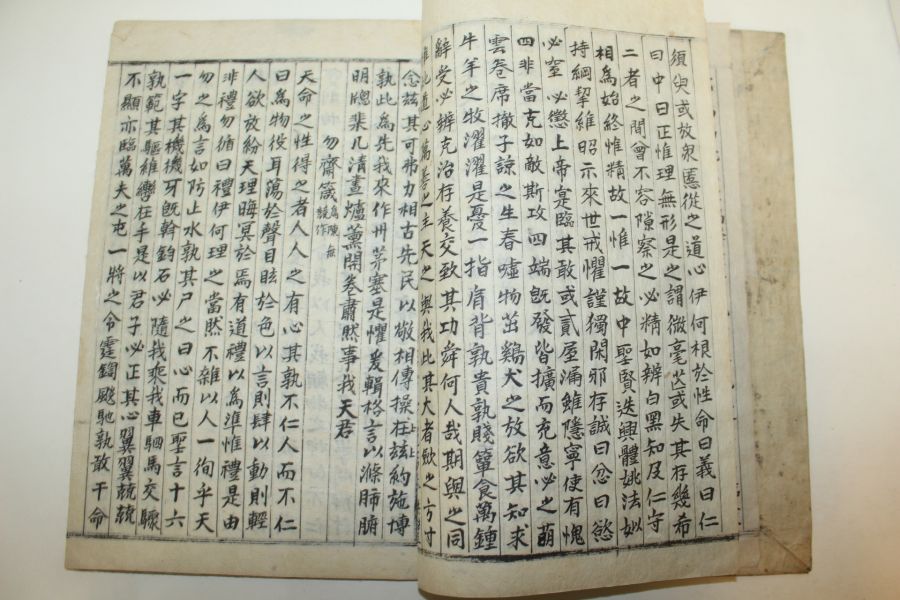 須臾或放衆慝從之道心伊何根於性命曰義曰仁
曰中曰正惟理無形是之謂微毫芒或失其存幾希
二者之間曾不容隙察之必精如辨白黑知及仁守
相爲始終惟精故一惟一故中聖賢迭興體姚法姒
持綱挈維昭示來世戒懼謹獨閑邪存誠曰忿曰慾
必窒必懲上帝寔臨其敢或貳屋漏雖隱寧使有愧
四非當克如敵斯攻四端旣發皆擴而充意必之萌
雲卷席撤子諒之生春噓物茁鷄犬之放欲其知求
牛羊之牧濯濯是憂一指肩背孰貴孰賤簞食萬鍾
辭受必辨克治存養交致其功舜何人哉期與之同
維此道心萬善之主天之與我此其大者斂之方寸
念玆其可弗力相古先民以敬相傳操在玆約施博
孰此爲先我來作州茅塞是懼爰輯格言以滌肺腑
明牕棐几清晝爐薰開卷肅然事我天君
勿齋箴 爲陳無競作
天命之性得之者人人之有心其孰不仁人而不仁
曰爲物役耳蕩於聲目眩於色以言則肆以動則輕
人欲放紛天理晦冥於焉有道禮以爲準惟禮是由
非禮勿循曰禮伊何理之當然不雜以人一徇乎天
勿之爲言如防止水孰其尸之曰心而已聖言十六
一字其機機牙旣斡鈞石必隨我乘我車駟馬交驟
孰範其驅維轡在手是以君子必正其心翼翼兢兢
不顯亦臨萬夫之屯一將之命霆鍧飈馳孰敢干命